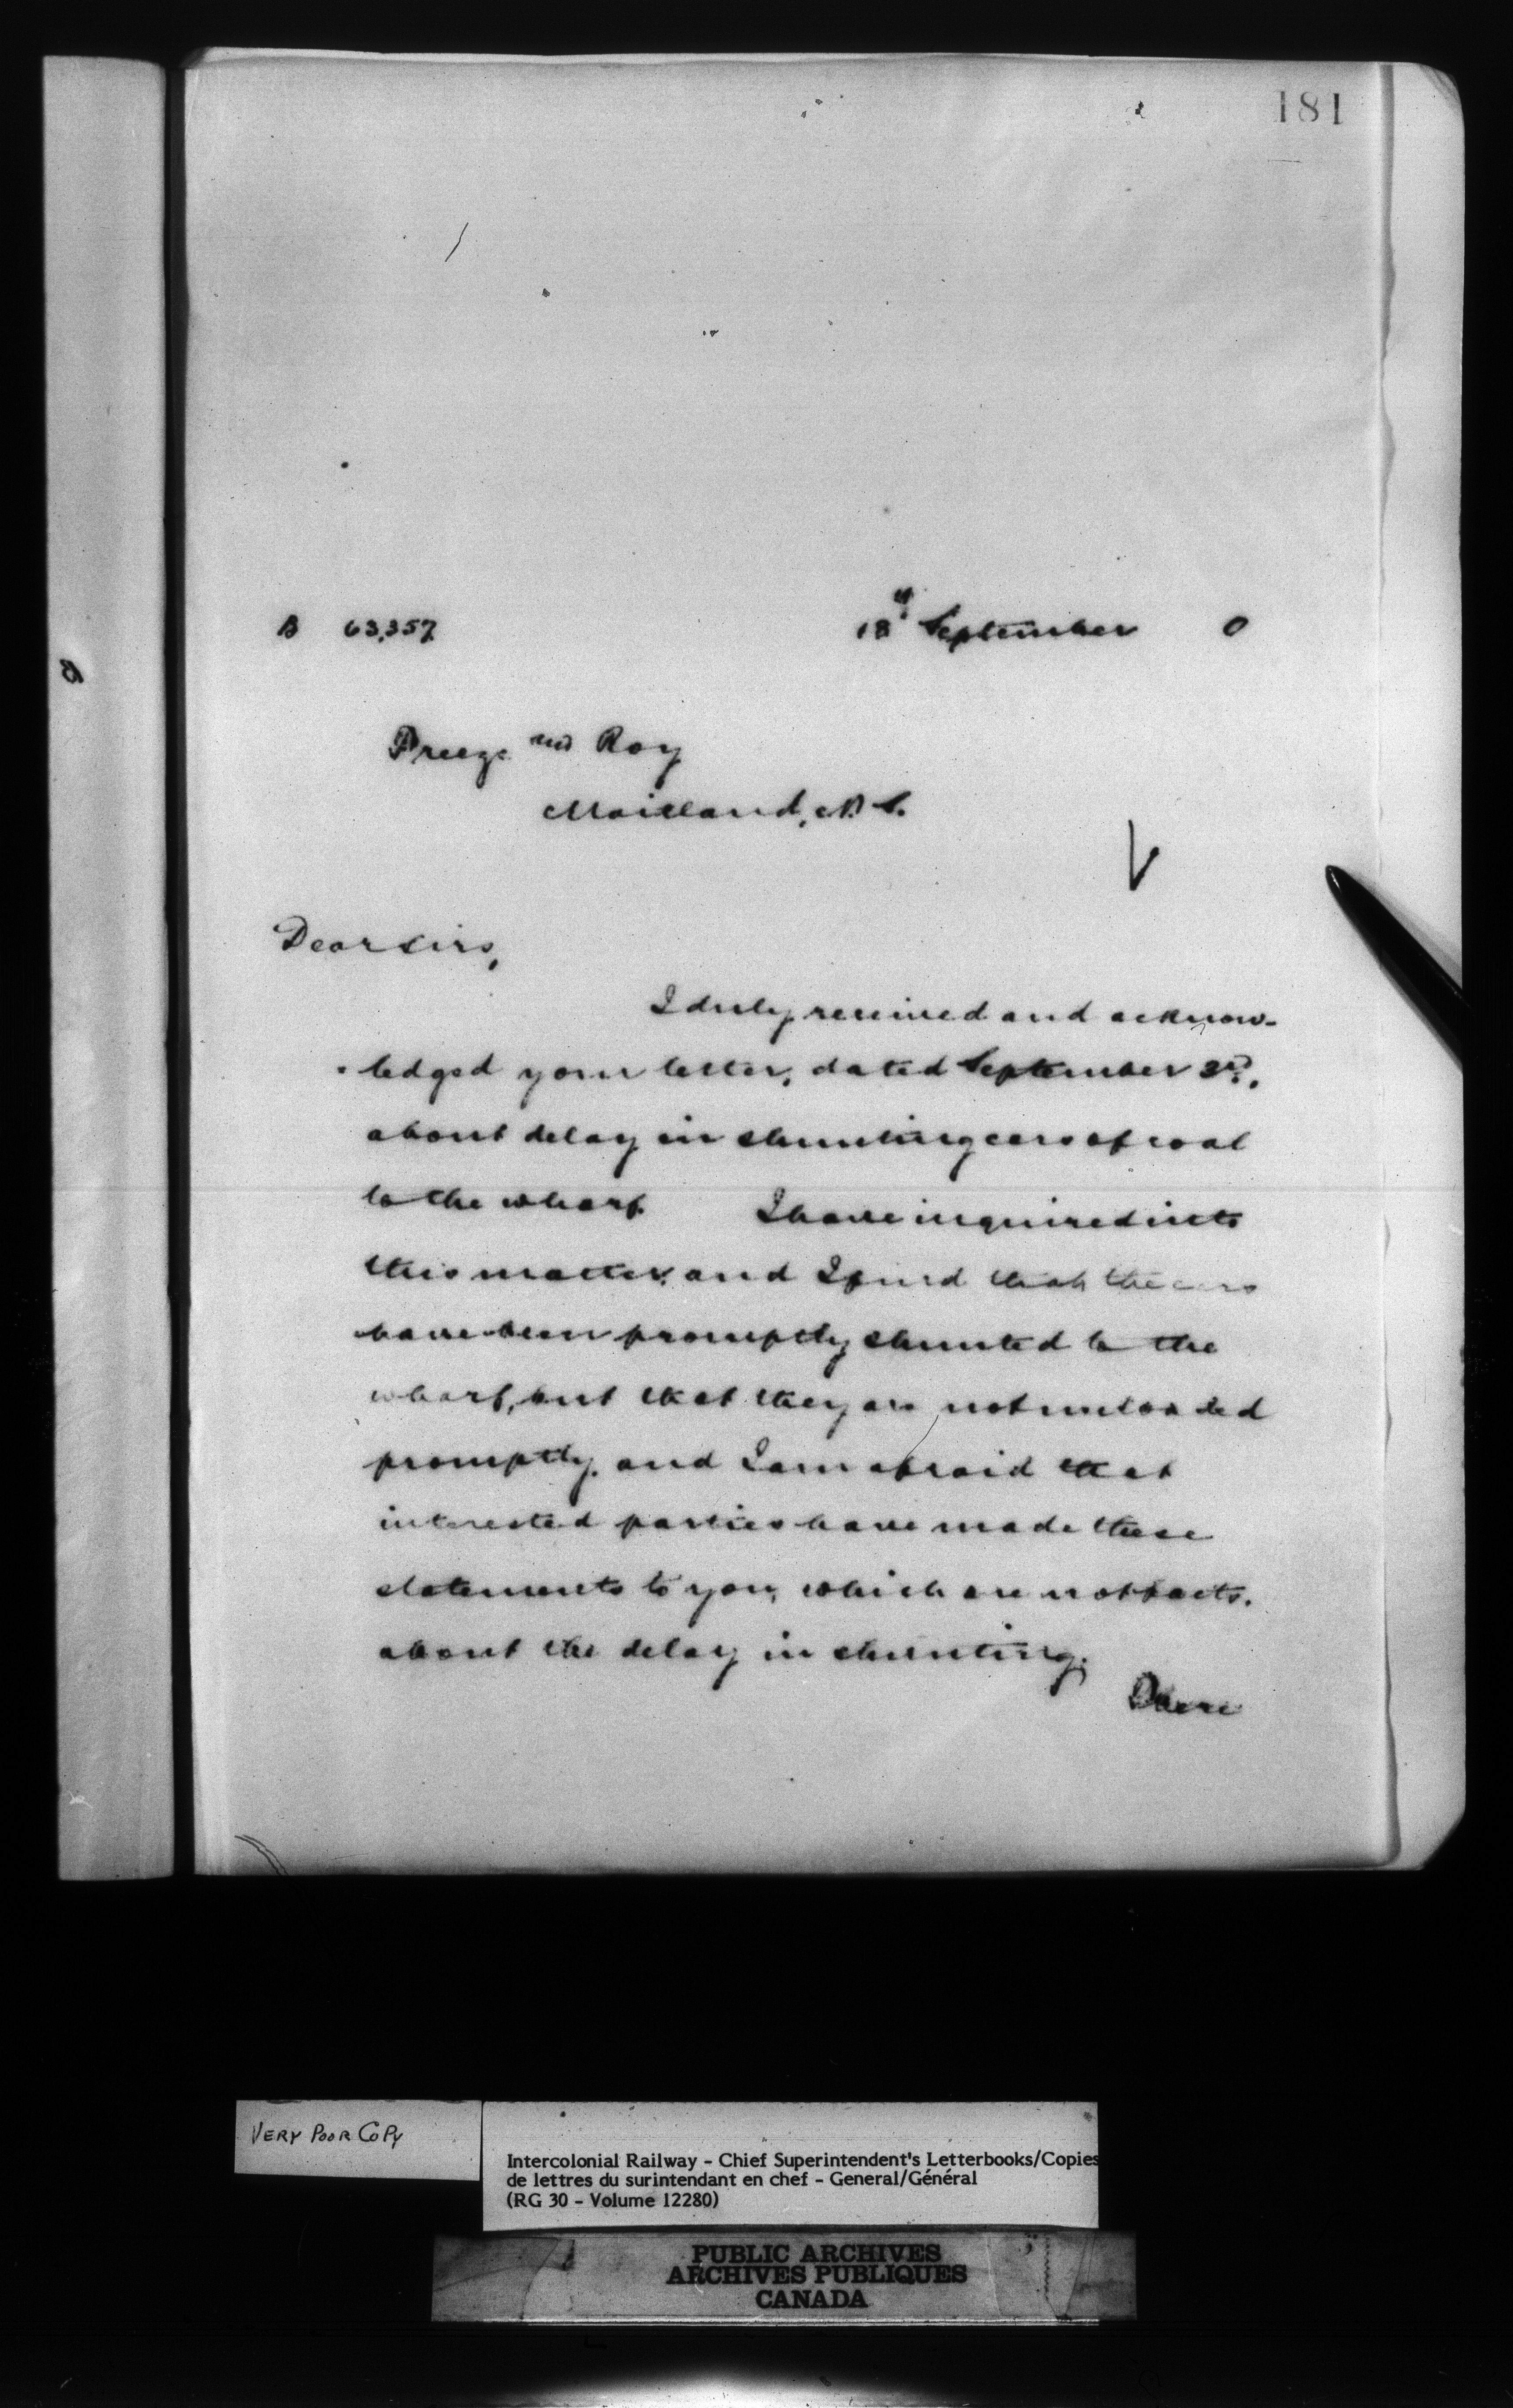 181
B 63,357 18th September 0
and Roy
Maitland, N.S.
Dear Sirs,
I duly received and acknow-
ledged your letter, dated September 3rd,
about delay in shunting cars of coal
to the wharf. I have inquired into
this matter, and I find that the cars
have been promptly shunted to the
wharf, but that they are not unloaded
promptly, and I am afraid that
interested parties have made these
statements to you, which are not facts,
about the delay in shunting.
VERY POOR COPY
Intercolonial Railway - Chief Superintendent's Letterbooks/Copies
de lettres du surintendant en chef - General/Général
(RG 30 - Volume 12280)
PUBLIC ARCHIVES
ARCHIVES PUBLIQUES
CANADA